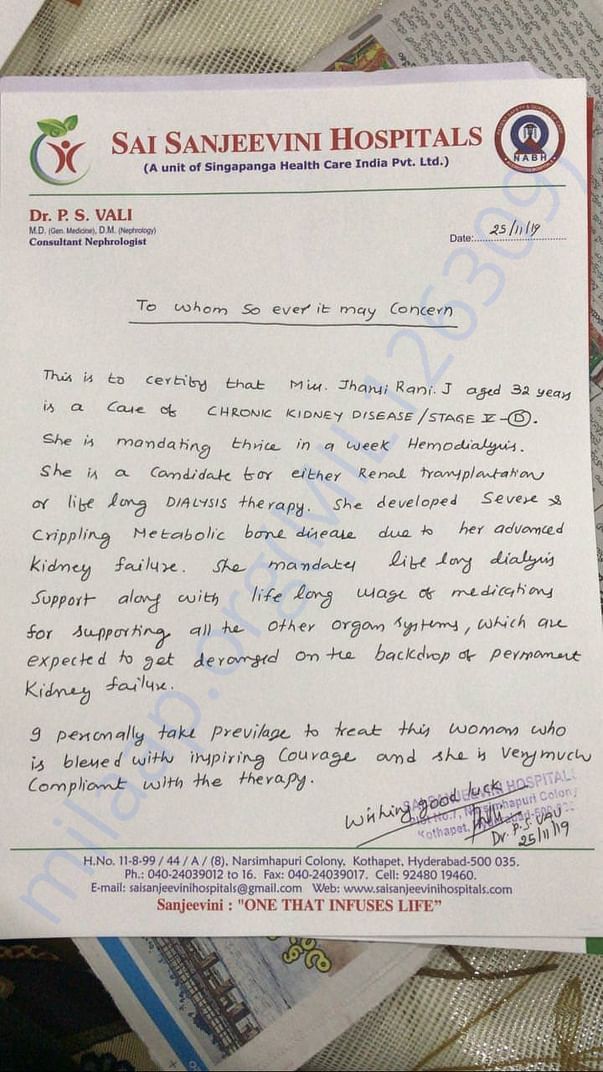 SAI SANJEEVINI HOSPITALS
(A unit of Singapanga Health Care India Pvt. Ltd.)
NABH
Dr. P. S. VALI
M.D. (Gen. Medicine), D.M. (Nephrology)
Consultant Nephrologist
Date:.......25/11/19.......
To whom so ever it may concern
This is to certify that Miss. Jhansi Rani. J aged 32 years
is a case of CHRONIC KIDNEY DISEASE/STAGE V-D.
She is mandating thrice in a week Hemodialysis.
She is a candidate for either Renal transplantation
or life long DIALYSIS therapy. She developed Severe &
Crippling Metabolic bone disease due to her advanced
Kidney failure. She mandates life long dialysis
Support along with life long usage of medications
for supporting all the other organ systems, which are
expected to get deranged on the backdrop of permanent
Kidney failure.
I personally take Previlage to treat this woman who
is blessed with inspiring Courage and she is Very much
Compliant with the therapy.
Wishing good luck
SAI SANJEEVINI HOSPITALS
Plot No.7, Narsimhapuri Colony
Kothapet, Hyderabad-500 035
Dr. P.S. VALI
25/11/19
H.No. 11-8-99 / 44 / A / (8), Narsimhapuri Colony, Kothapet, Hyderabad-500 035.
Ph.: 040-24039012 to 16. Fax: 040-24039017. Cell: 92480 19460.
E-mail: saisanjeevinihospitals@gmail.com Web: www.saisanjeevinihospitals.com
Sanjeevini : "ONE THAT INFUSES LIFE"